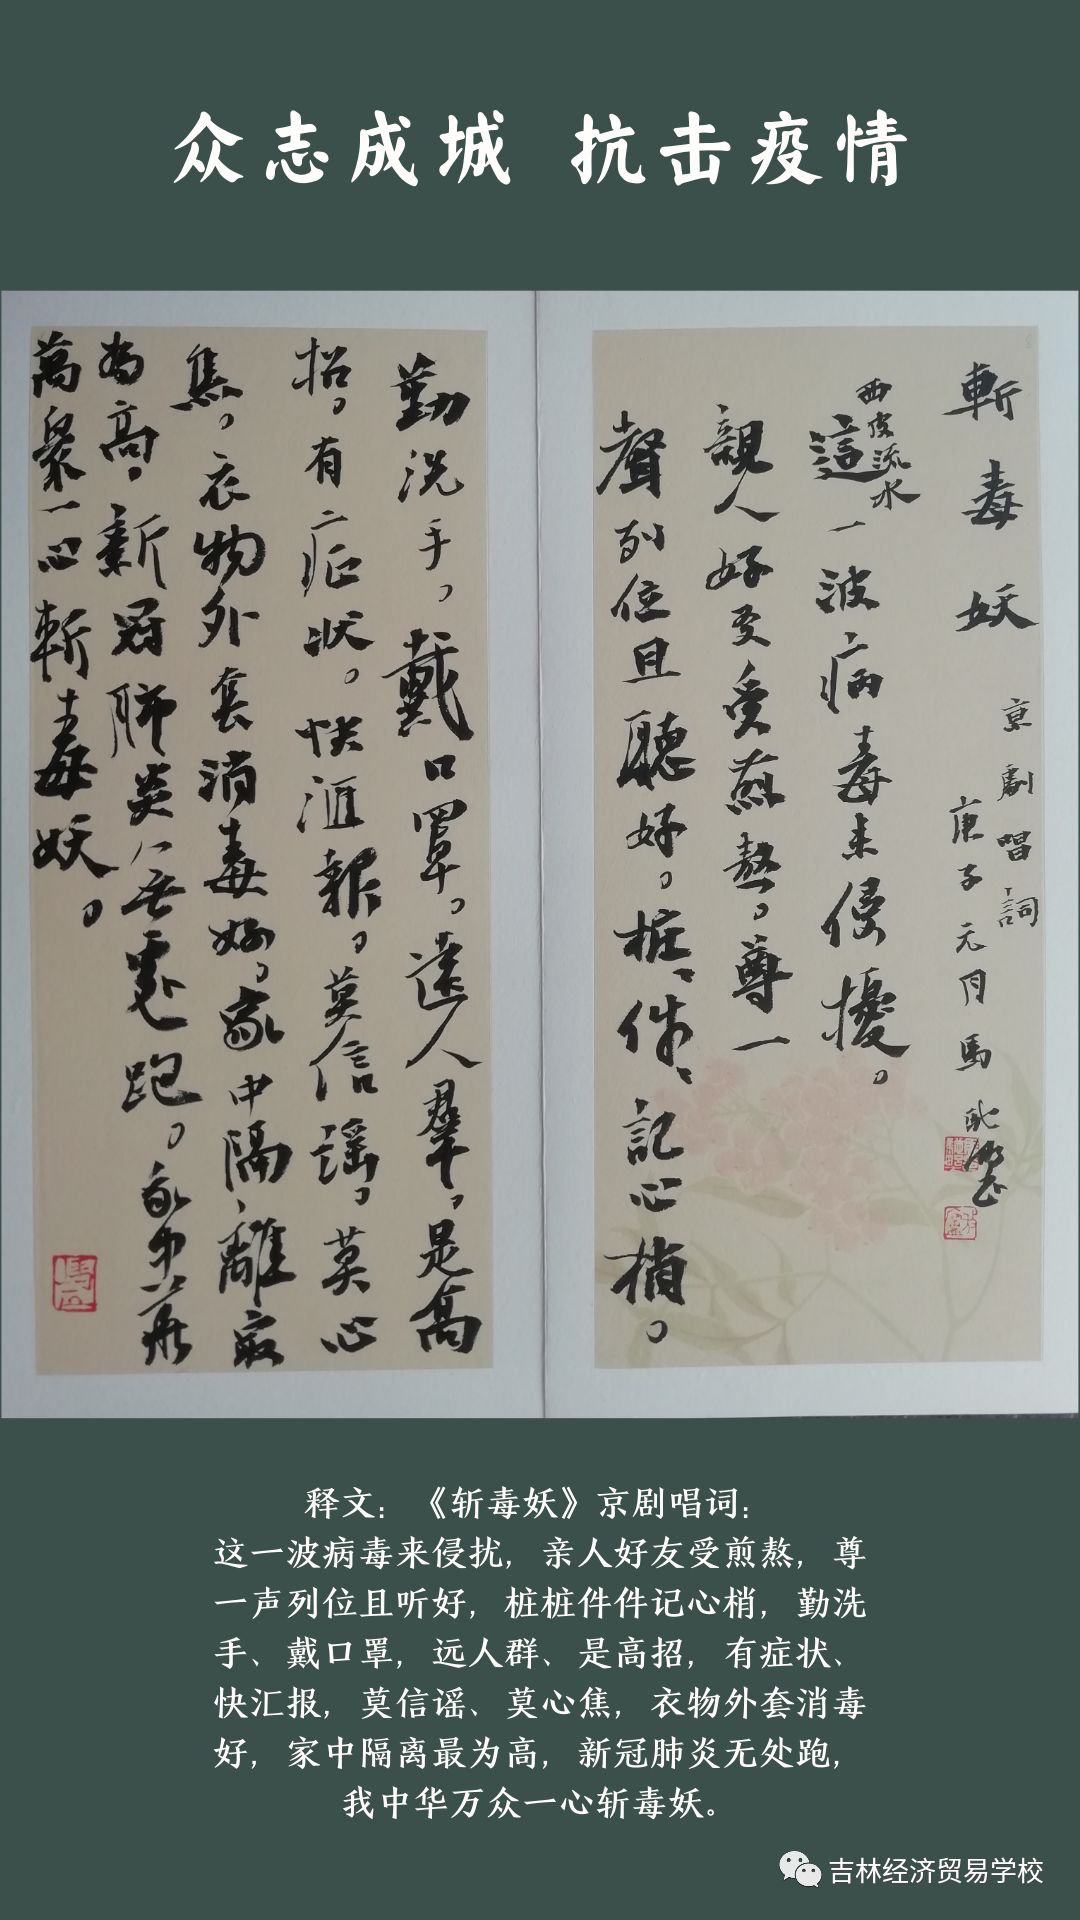 众志成城 抗击疫情
斬毒妖
京劇唱詞
庚子元月馬
西皮流水
這一波病毒来侵擾。
親人好友受煎熬。尊一
聲列位且聽好。桩、件、記心梢。
勤洗手。戴口罩。遠人羣。是高
招。有症状。快滙報。莫信謡。莫心
焦。衣物外套消毒好。家中隔離最
為高。新冠肺炎无處跑。我中華
萬衆一心斬毒妖。
释文：《斩毒妖》京剧唱词：
这一波病毒来侵扰，亲人好友受煎熬，尊
一声列位且听好，桩桩件件记心梢，勤洗
手、戴口罩，远人群、是高招，有症状、
快汇报，莫信谣、莫心焦，衣物外套消毒
好，家中隔离最为高，新冠肺炎无处跑，
我中华万众一心斩毒妖。
吉林经济贸易学校